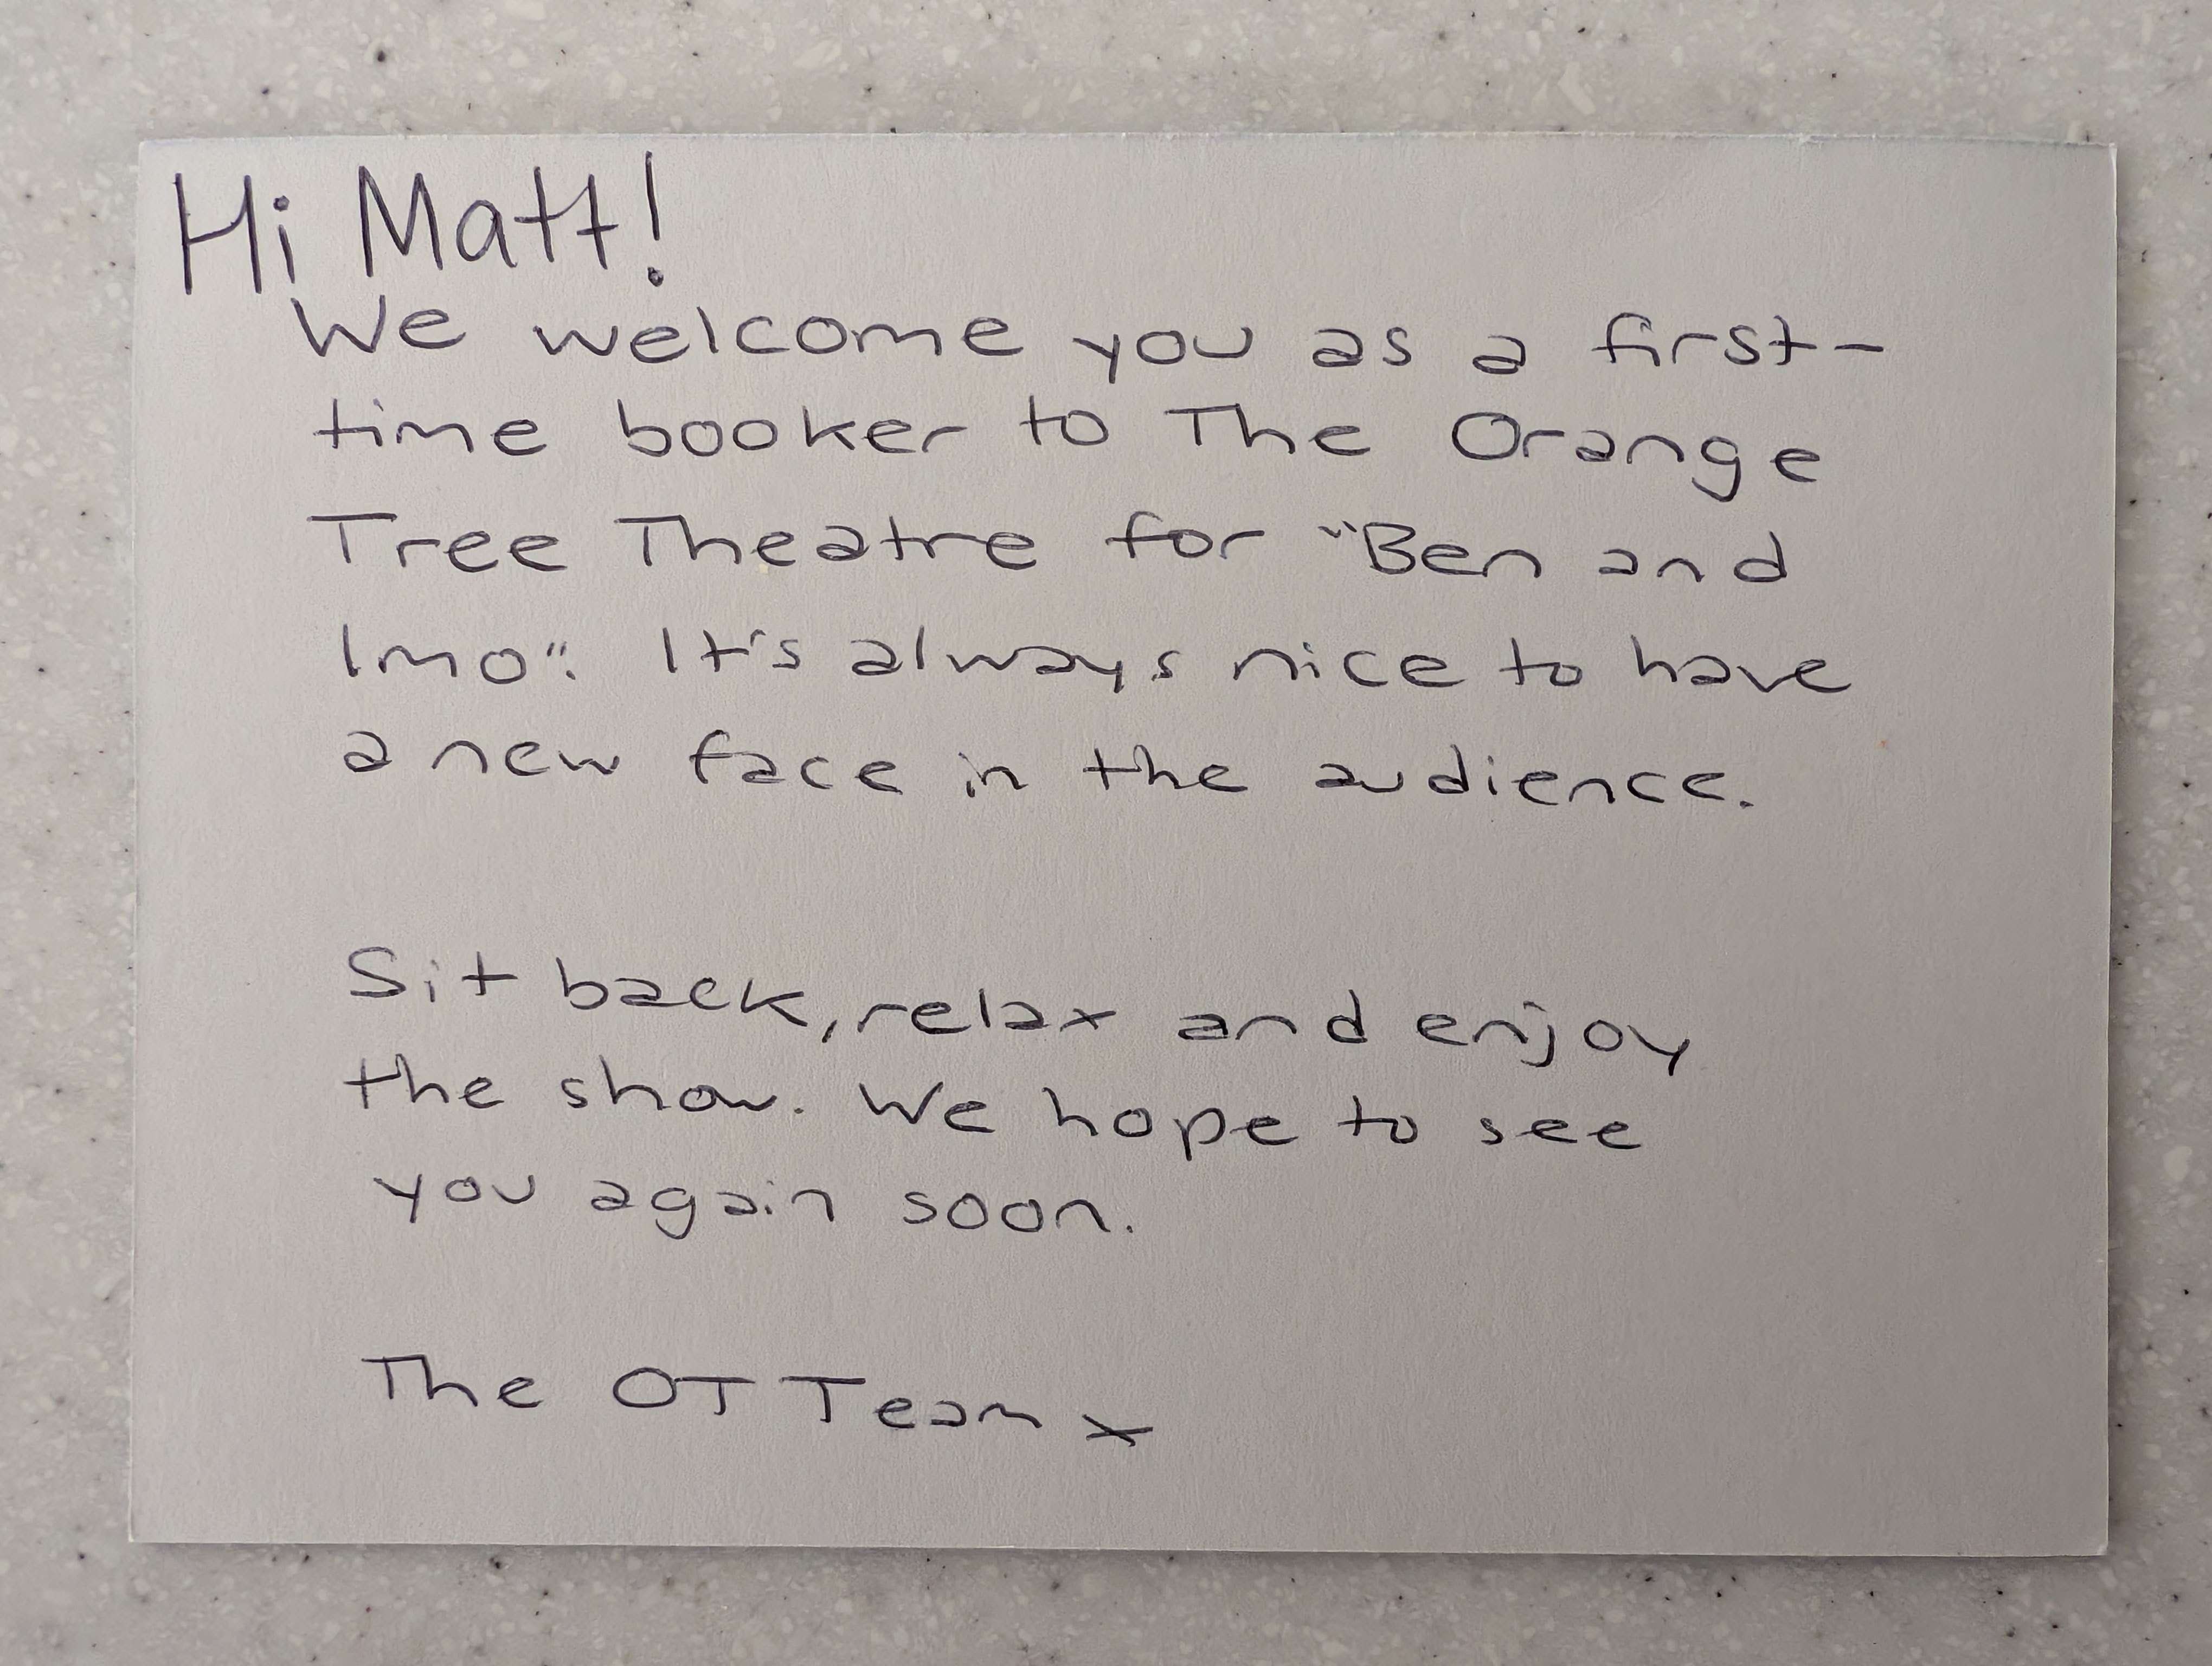 Hi Matt!
We welcome you as a first-
time booker to The Orange
Tree Theatre for "Ben and
Imo". It's always nice to have
a new face in the audience.
Sit back, relax and enjoy
the show. We hope to see
you again soon.
The OT Team x